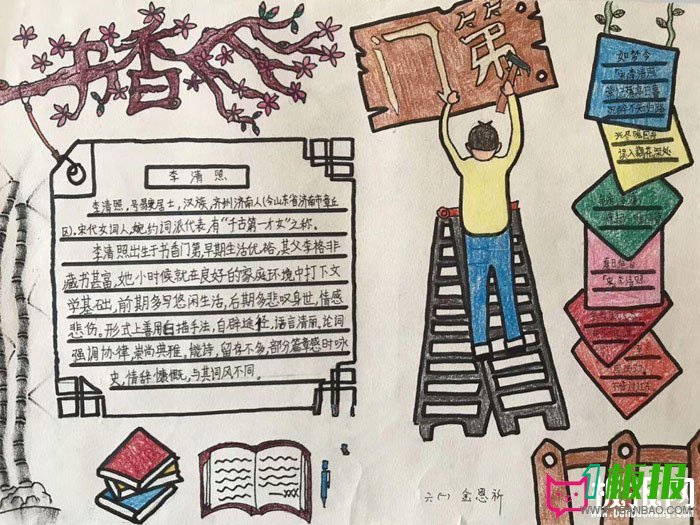 书香
门第
李清照
李清照，号易安居士，汉族，齐州济南人（今山东省济南市章丘
区）宋代女词人，婉约词派代表，有“千古第一才女”之称。
李清照出生于书香门第，早期生活优裕，其父李格非
藏书甚富，她小时候就在良好的家庭环境中打下文
学基础，前期多写悠闲生活，后期多悲叹身世，情感
悲伤，形式上善用白描手法，自辟途径，语言清丽，论词
强调协律，崇尚典雅，能诗，留存不多，部分篇章感时咏
史，情辞慷慨，与其词风不同。
如梦令
兴尽晚回舟
误入藕花深处
六（一） 金恩祈
1板报
1BANBAO.COM